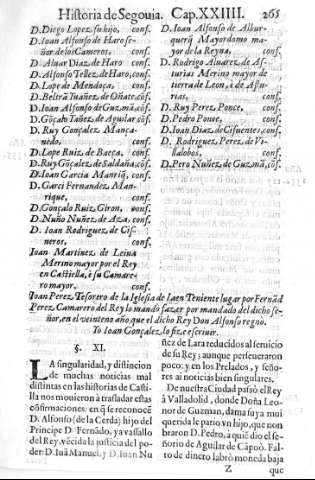 Historia de Segouia. Cap.XXIIII. 265
D. Diego Lopez, su hijo, conf.
D. Ioan Alfonso de Haro se-
ñor de los Cameros, conf.
D. Aluar Diaz, de Haro conf.
D. Alfonso Tellez, de Haro, conf.
D. Lope de Mendoça, conf.
D. Beltrã Iuáñez, de Oñate, cõf.
D. Ioan Alfonso de Guzmã, cõf.
D. Gõçalo Yañez de Aguilar cõf.
D. Ruy Gonçalez, Mança-
nedo, conf.
D. Lope Ruiz, de Baeça, conf.
D. Ruy Gõçalez, de Saldaña, cõf.
D. Ioan Garcia Mantiq, conf.
D. Garci Fernandez Man-
rique, conf.
D. Gonçalo Ruiz, Giron, conf.
D. Nuño Nuñez, de Aza, conf.
D. Ioan Rodriguez, de Cis-
neros, conf.
Ioan Martinez de Leiua
Merino mayor por el Rey
en Castiella, è su Camare-
ro mayor, conf.
D. Ioan Alfonso de Albur-
querq̃ Mayordomo ma-
yor de la Reyna, conf.
D. Rodrigo Aluarez, de As-
turias Merino mayor de
tierra de Leon, è de Astu-
rias, conf.
D. Ruy Perez, Ponce, conf.
D. Pedro Ponce, conf.
D. Ioan Diaz, de Cifuentes, conf.
D. Rodriguez, Perez, de Vi-
llalobos, conf.
D. Pero Nuñez, de Guzmã, cõf.
Ioan Perez, Tesorero de la Iglesia de Iaen Teniente lugar por Fernãd
Perez, Camarero del Rey lo mando fazer por mandado del dicho se-
ñor, en el veinteno año que el dicho Rey Don Alfonso regno.
Yo Ioan Gonçalez, lo fiz, e escriuir.
§. XI.
LA singularidad, y distincion
de muchas noticias mal
distintas en las historias de Casti-
lla nos mouieron à trasladar estas
cõfirmaciones: en q̃ se reconocẽ
D. Alfonso (de la Cerda) hijo del
Principe D. Fernãdo, ya vassallo
del Rey, vẽcida la justicia del po-
der: D. Iuã Manuel, y D. Iuan Nu
ñez de Lara reducidos al seruicio
de su Rey; aunque perseueraron
poco: y en los Prelados, y seño-
res ai noticias bien singulares.
De nuestra Ciudad passò el Rey
à Valladolid, donde Doña Leo-
nor de Guzman, dama suya mui
querida le pario vn hijo, que non
braron D. Pedro, à quiẽ dio el se-
ñorio de Aguilar de Cãpoò. Fal-
to de dinero labrò moneda baja
Z que